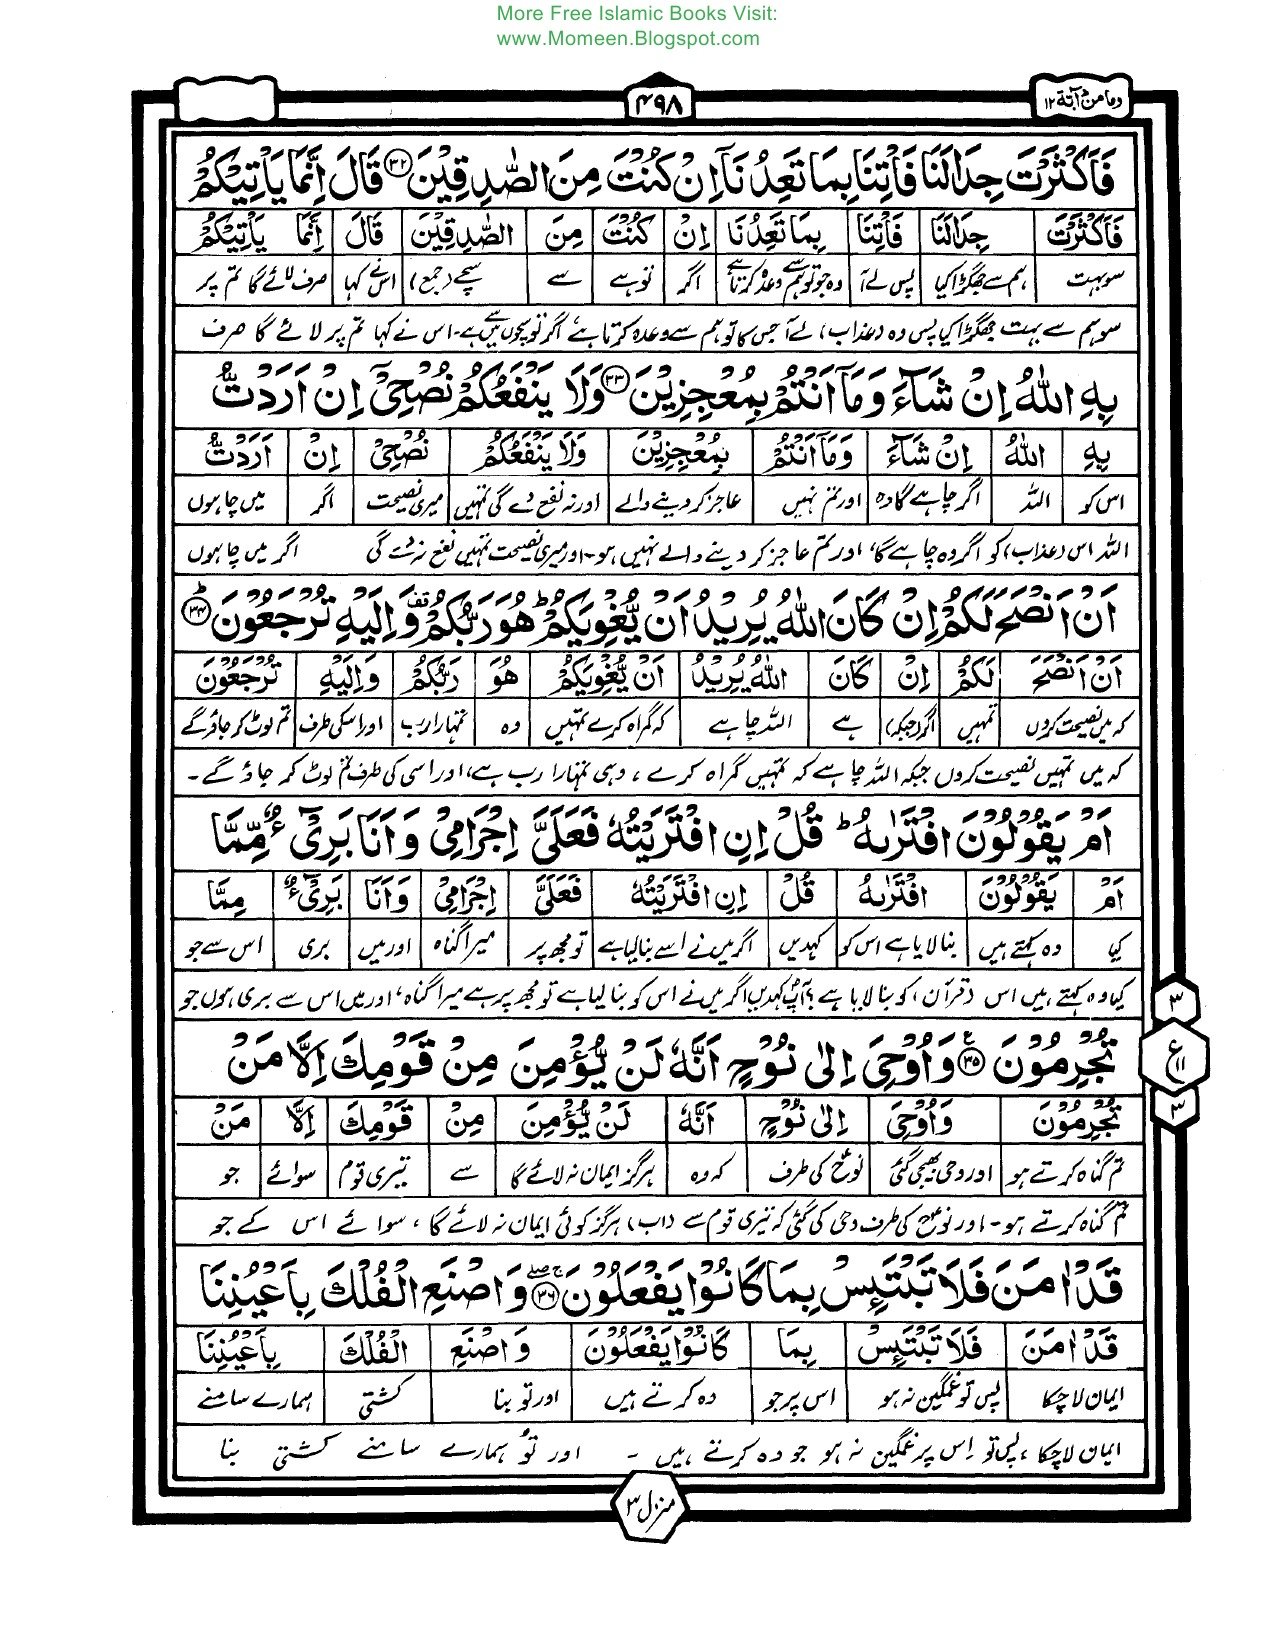 More Free Islamic Books Visit:
www.Momeen.Blogspot.com
وما من دآبة ۱۲
۴۹۸
فَاَكْثَرْتَ جِدَالَنَا فَاْتِنَا بِمَا تَعِدُنَآ اِنْ كُنْتَ مِنَ الصّٰدِقِيْنَ ﴿۳۲﴾ قَالَ اِنَّمَا يَاْتِيْكُمْ
فَاَكْثَرْتَ جِدَالَنَا فَاْتِنَا بِمَا تَعِدُنَا اِنْ كُنْتَ مِنَ الصّٰدِقِيْنَ قَالَ اِنَّمَا يَاْتِيْكُمْ
سو بہت ہم سے جھگڑا کیا پس لے آ وہ جو تو ہم سے وعدہ کرتا ہے اگر تو ہے سے سچے (جمع) اس نے کہا صرف لائے گا تم پر
سو ہم سے بہت جھگڑا کیا پس وہ (عذاب) لے آ جس کا تو ہم سے وعدہ کرتا ہے اگر تو سچوں میں سے ہے۔ اس نے کہا تم پر لائے گا صرف
بِهِ اللّٰهُ اِنْ شَآءَ وَمَآ اَنْتُمْ بِمُعْجِزِيْنَ ﴿۳۳﴾ وَلَا يَنْفَعُكُمْ نُصْحِيْٓ اِنْ اَرَدْتُّ
بِهِ اللّٰهُ اِنْ شَآءَ وَمَآ اَنْتُمْ بِمُعْجِزِيْنَ وَلَا يَنْفَعُكُمْ نُصْحِيْٓ اِنْ اَرَدْتُّ
اس کو اللہ اگر چاہے گا وہ اور تم نہیں عاجز کر دینے والے اور نہ نفع دے گی تمہیں میری نصیحت اگر میں چاہوں
اللہ اس (عذاب) کو اگر وہ چاہے گا، اور تم عاجز کر دینے والے نہیں ہو۔ اور میری نصیحت تمہیں نفع نہ دے گی اگر میں چاہوں
اَنْ اَنْصَحَ لَكُمْ اِنْ كَانَ اللّٰهُ يُرِيْدُ اَنْ يُّغْوِيَكُمْ ؕ هُوَ رَبُّكُمْ قف وَاِلَيْهِ تُرْجَعُوْنَ ؕ﴿۳۴﴾
اَنْ اَنْصَحَ لَكُمْ اِنْ كَانَ اللّٰهُ يُرِيْدُ اَنْ يُّغْوِيَكُمْ هُوَ رَبُّكُمْ وَاِلَيْهِ تُرْجَعُوْنَ
کہ میں نصیحت کروں تمہیں اگر (جبکہ) ہے اللہ چاہے کہ گمراہ کرے تمہیں وہ تمہارا رب اور اسکی طرف تم لوٹ کر جاؤ گے
کہ میں تمہیں نصیحت کروں جبکہ اللہ چاہے کہ تمہیں گمراہ کرے، وہی تمہارا رب ہے، اور اسی کی طرف تم لوٹ کر جاؤ گے۔
اَمْ يَقُوْلُوْنَ افْتَرٰىهُ ؕ قُلْ اِنِ افْتَرَيْتُهٗ فَعَلَيَّ اِجْرَامِيْ وَاَنَا بَرِيْٓءٌ مِّمَّا
اَمْ يَقُوْلُوْنَ افْتَرٰىهُ قُلْ اِنِ افْتَرَيْتُهٗ فَعَلَيَّ اِجْرَامِيْ وَاَنَا بَرِيْٓءٌ مِمَّا
کیا وہ کہتے ہیں بنا لایا ہے اس کو کہدیں اگر میں نے اسے بنا لیا ہے تو مجھ پر میرا گناہ اور میں بری اس سے جو
کیا وہ کہتے ہیں اس (قرآن) کو بنا لایا ہے؟ آپؐ کہدیں اگر میں نے اس کو بنا لیا ہے تو مجھ پر ہے میرا گناہ، اور میں اس سے بری ہوں جو
۳
ع
۱۱
۳
تُجْرِمُوْنَ ﴿۳۵﴾ وَاُوْحِيَ اِلٰى نُوْحٍ اَنَّهٗ لَنْ يُّؤْمِنَ مِنْ قَوْمِكَ اِلَّا مَنْ
تُجْرِمُوْنَ وَاُوْحِيَ اِلٰى نُوْحٍ اَنَّهٗ لَنْ يُّؤْمِنَ مِنْ قَوْمِكَ اِلَّا مَنْ
تم گناہ کرتے ہو اور وحی بھیجی گئی نوحؑ کی طرف کہ وہ ہرگز ایمان نہ لائے گا سے تیری قوم سوائے جو
تم گناہ کرتے ہو۔ اور نوحؑ کی طرف وحی کی گئی کہ تیری قوم سے (اب) ہرگز کوئی ایمان نہ لائے گا، سوائے اس کے جو
قَدْ اٰمَنَ فَلَا تَبْتَئِسْ بِمَا كَانُوْا يَفْعَلُوْنَ ﴿۳۶﴾ وَاصْنَعِ الْفُلْكَ بِاَعْيُنِنَا
قَدْ اٰمَنَ فَلَا تَبْتَئِسْ بِمَا كَانُوْا يَفْعَلُوْنَ وَاصْنَعِ الْفُلْكَ بِاَعْيُنِنَا
ایمان لا چکا پس تو غمگین نہ ہو اس پر جو وہ کرتے ہیں اور تو بنا کشتی ہمارے سامنے
ایمان لا چکا، پس تو اس پر غمگین نہ ہو جو وہ کرتے ہیں۔ اور تو ہمارے سامنے کشتی بنا
منزل ۳